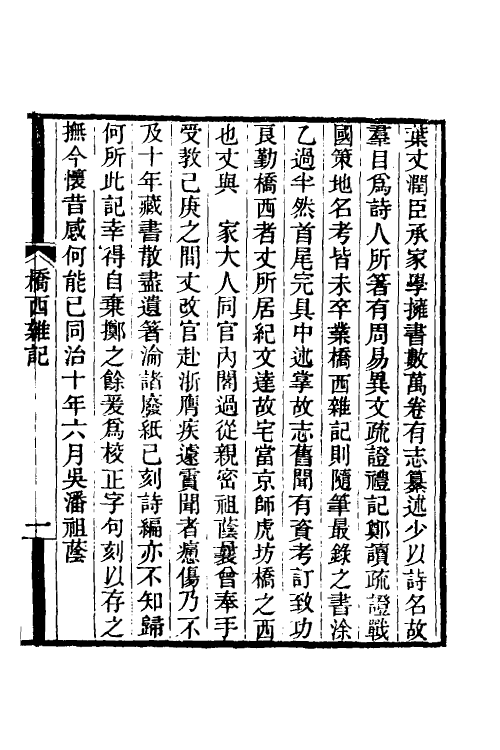 葉丈潤臣承家學擁書數萬卷有志纂述少以詩名故
羣目爲詩人所著有周易異文疏證禮記鄭讀疏證戰
國策地名考皆未卒業橋西雜記則隨筆最錄之書涂
乙過半然首尾完具中述掌故志舊聞有資考訂致功
良勤橋西者丈所居紀文達故宅當京師虎坊橋之西
也丈與　家大人同官內閣過從親密祖蔭曩曾奉手
受教己庚之間丈改官赴浙膺疾遽賈聞者悳傷乃不
及十年藏書散盡遺著淪諸廢紙已刻詩編亦不知歸
何所此記幸得自棄擲之餘爰爲校正字句刻以存之
撫今懷昔感何能已同治十年六月吳潘祖蔭
橋西雜記
一